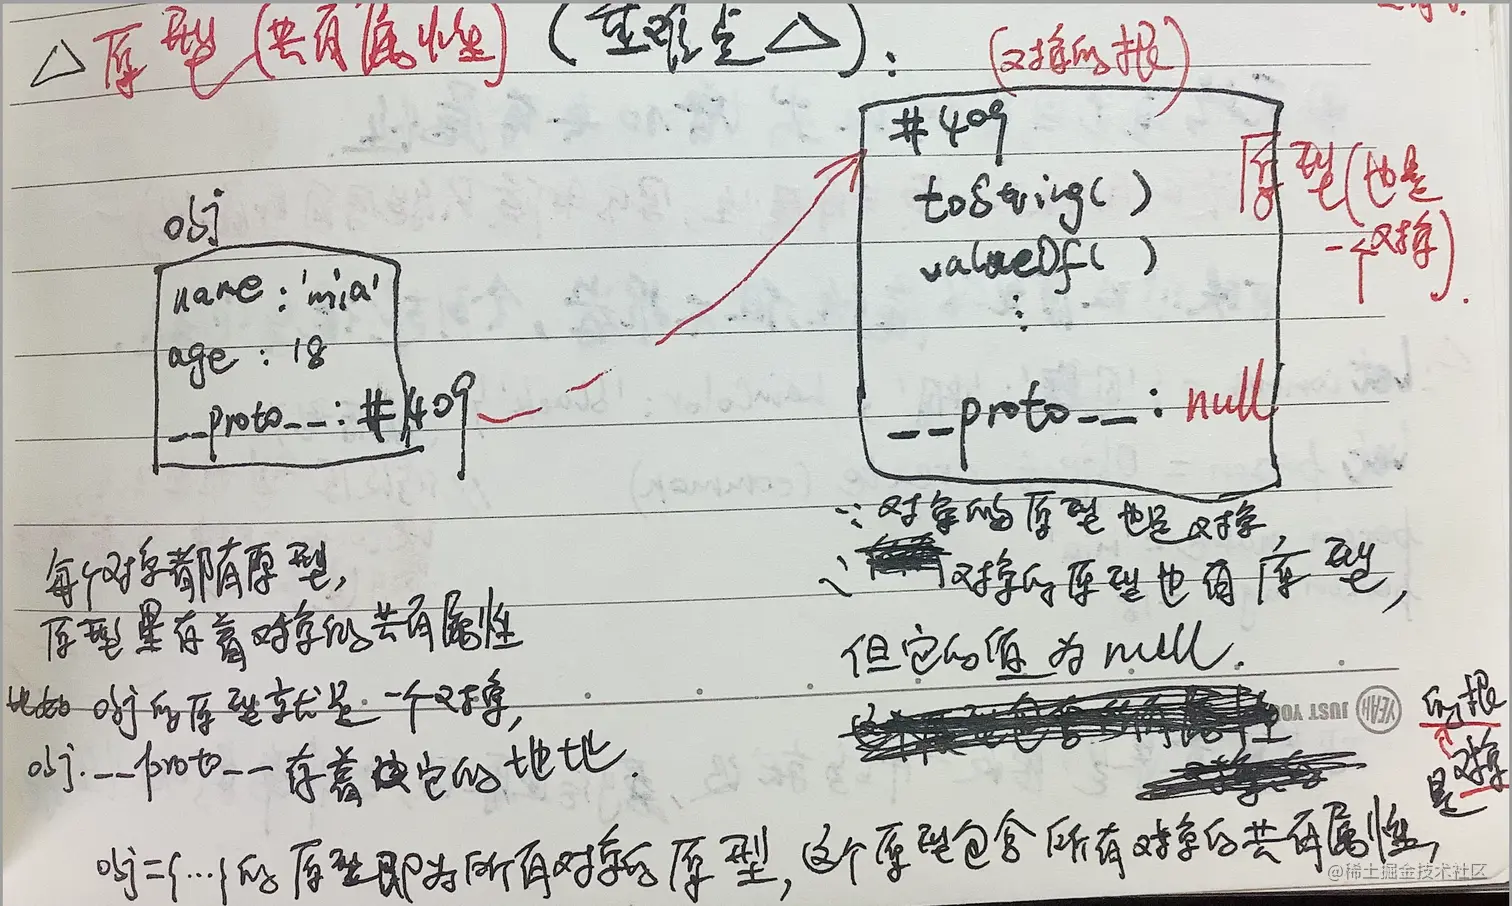 △ 原型 (共有属性) (重难点 △) :
(对象的根)
obj
name : 'mia'
age : 18
__proto__ : #409
#409
toString( )
valueOf( )
⋮
__proto__ : null
原型(也是
一个对象).
每个对象都有原型,
原型里存着对象的共有属性
比如 obj的原型就是一个对象,
obj.__proto__存着它的地址.
∵ 对象的原型也是对象,
∴ 对象的原型也有原型,
但它的值为null.
JUST YO
YEAH
obj={...}的原型即为所有对象的原型,这个原型包含所有对象的共有属性,
是对象
的根
@稀土掘金技术社区